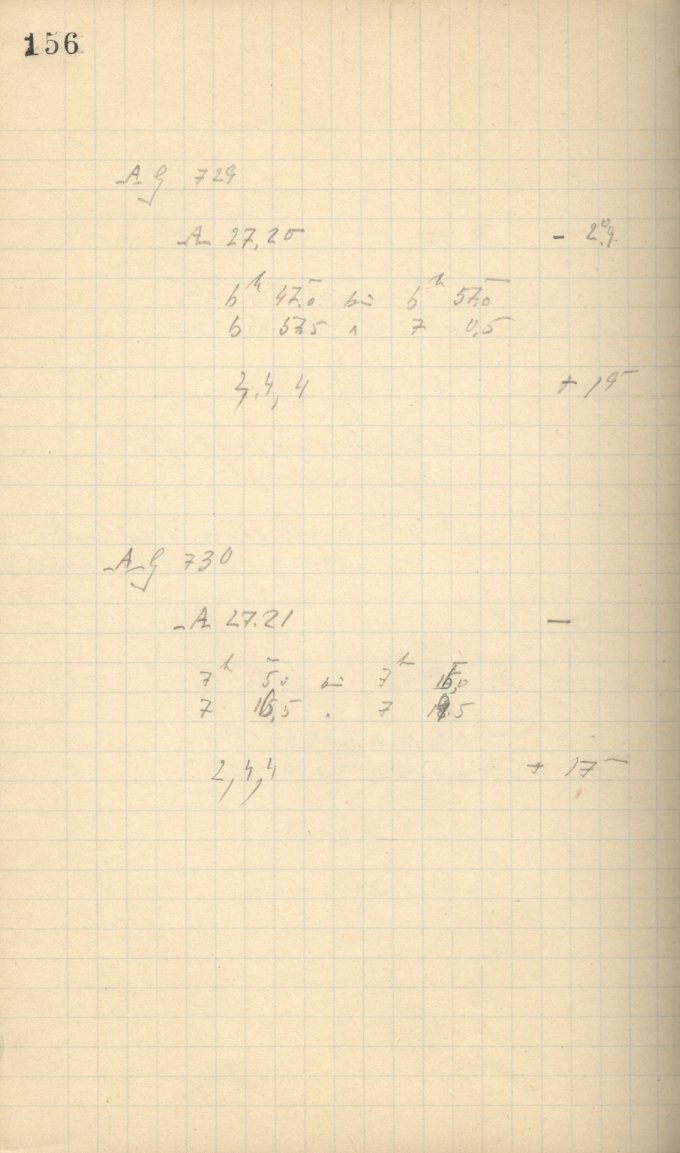 156
AG 729
A 27,20 - 2°.9
6h 47.0 bis 6h 57.0
6 57.5 " 7 0,5
3,4,4 + 19
AG 730
A 27.21 —
7h 5.0 bis 7h 15,0
7 15,5 " 7 18.5
2,4,4 + 17